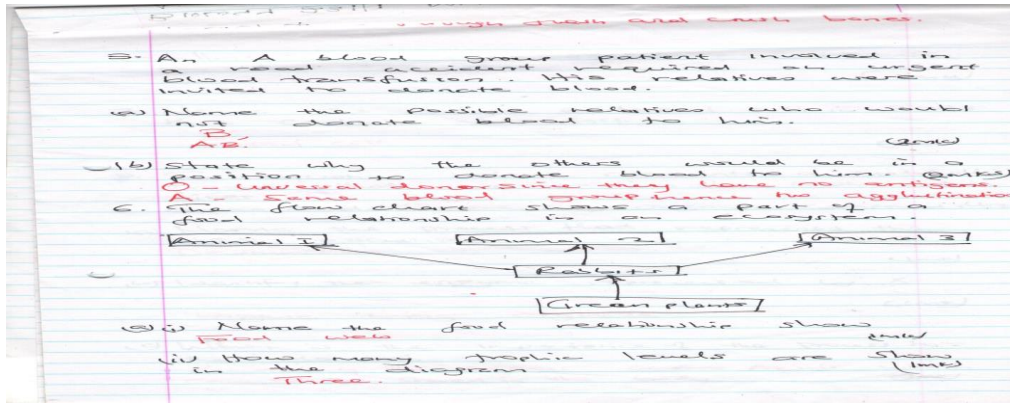 through flesh and crush bones.
5. An A blood group patient involved in
a road accident required an urgent
blood transfusion. His relatives were
invited to donate blood.
(a) Name the possible relatives who would
not donate blood to him.
B
AB.
(2mks)
(b) State why the others would be in a
position to donate blood to him. (2mks)
O - universal donor since they have no antigens.
A - Same blood group hence no agglutination
6. The flow chart shows a part of a
food relationship in an ecosystem.
Animal 1 Animal 2 Animal 3
Rabbits
Green plants
(a) (i) Name the food relationship show
Food web
(ii) How many trophic levels are show
in the diagram (1mk)
Three.